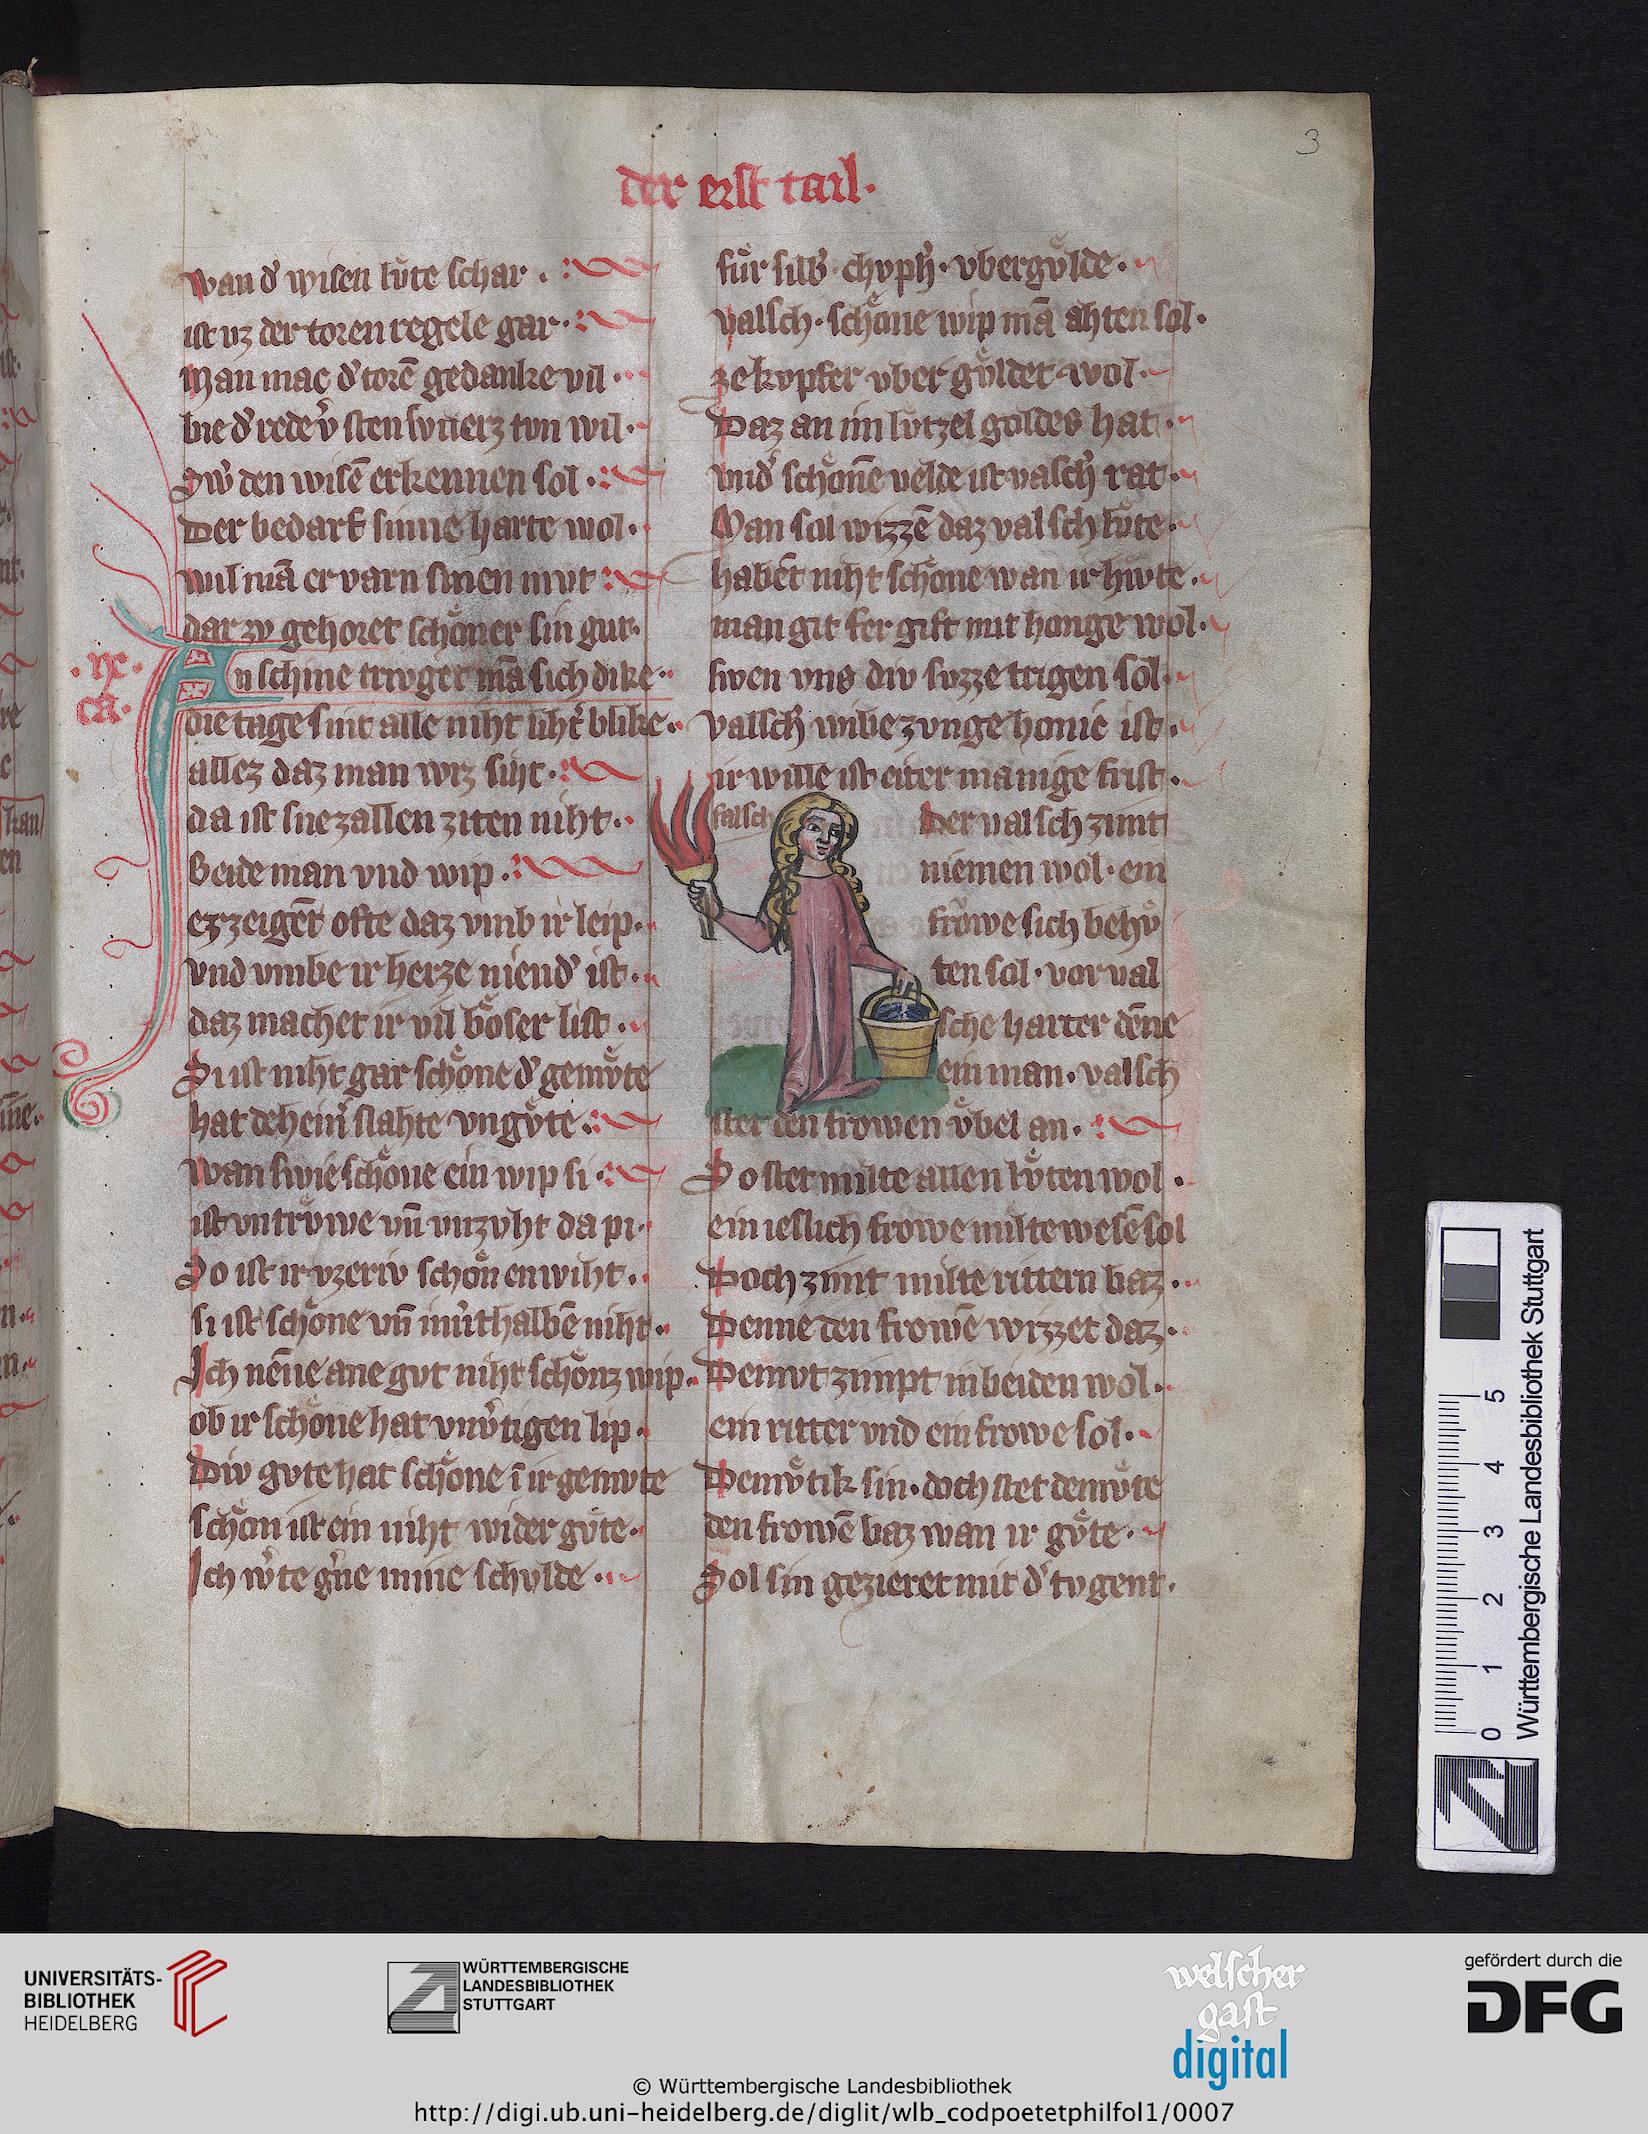 3
der erst tail·
wan d' wisen lůte schar ·
ist vz der toren regele gar·
Man mac d' torē gedanke vil·
bie d' rede v̓sten swerz tvn wil·
Sw̓ den wisē erkennen sol·
Der bedarf sinne harte wol·
wil mā ervarn sinen mvt
dar zv gehoret schoͤner sin gut·
·ne·
ca·
An schine trivget mā sich dike·
die tage sint alle niht liht̓ blike·
allez daz man wiz siht·
da ist snezallen ziten niht·
Beide man vnd wip·
ez zeigēt ofte daz vmb ir leip·
vnd vmbe ir herze niend' ist·
daz machet ir vil boͤser list·
Si ist niht gar schoͤne d' gemvͤte
hat dehein̓ slahte vngvͤte·
Wan swie schoͤne ein wip si·
ist vntrvͤwe vn̄ vnzvht da pi·
So ist ir vzeriv schoͤn enwiht·
si ist schoͤne vn̄ inn̓thalbē niht·
Ich nēne ane gvt niht schoͤnz wip·
ob ir schoͤne hat vnv̓tigen lip·
Div gvte hat schoͤne ī ir gemvte
schoͤn ist ein niht wider gvͤte·
Ich w̓te g̓ne mine schvlde·
fuͤr silb̓· chvph̓· vbergvͤlde·
valsch· schoͤne wip mā ahten sol·
ze kvpfer vber gvͤldet wol·
Daz an im lvtzel goldes hat·
vnd' schoͤnē velde ist valsch̓ rat·
Man sol wizzē daz valsch lvͤte·
habēt niht schoͤne wan ir hiwte·
man git fergift mit honge wol·
swen vns div svzze trigen sol·
valsch̓ wibe zvnge honic ist·
ir wille ist eiter manige frist·
falsch
Der valsch zimt
niemen wol· ein
frowe sich behvͤ
ten sol· vor val
sche harter dēne
ein man· valsch
stet den frowen vͤbel an·
So stet milte allen lvͤten wol·
ein ieslich frowe milte wesē sol
Doch zimt milte rittern baz·
Denne den frowē wizzet daz·
Demvt zimpt in beiden wol·
ein ritter vnd ein frowe sol·
Demvͤtik sin· doch stet demvͤte
den frowē baz wan ir gvͤte·
Sol sin gezieret mit d' tvgent·
0 1 2 3 4 5
Württembergische Landesbibliothek Stuttgart
UNIVERSITÄTS-
BIBLIOTHEK
HEIDELBERG
WÜRTTEMBERGISCHE
LANDESBIBLIOTHEK
STUTTGART
welscher
gast
digital
gefördert durch die
DFG
© Württembergische Landesbibliothek
http://digi.ub.uni-heidelberg.de/diglit/wlb_codpoetetphilfol1/0007